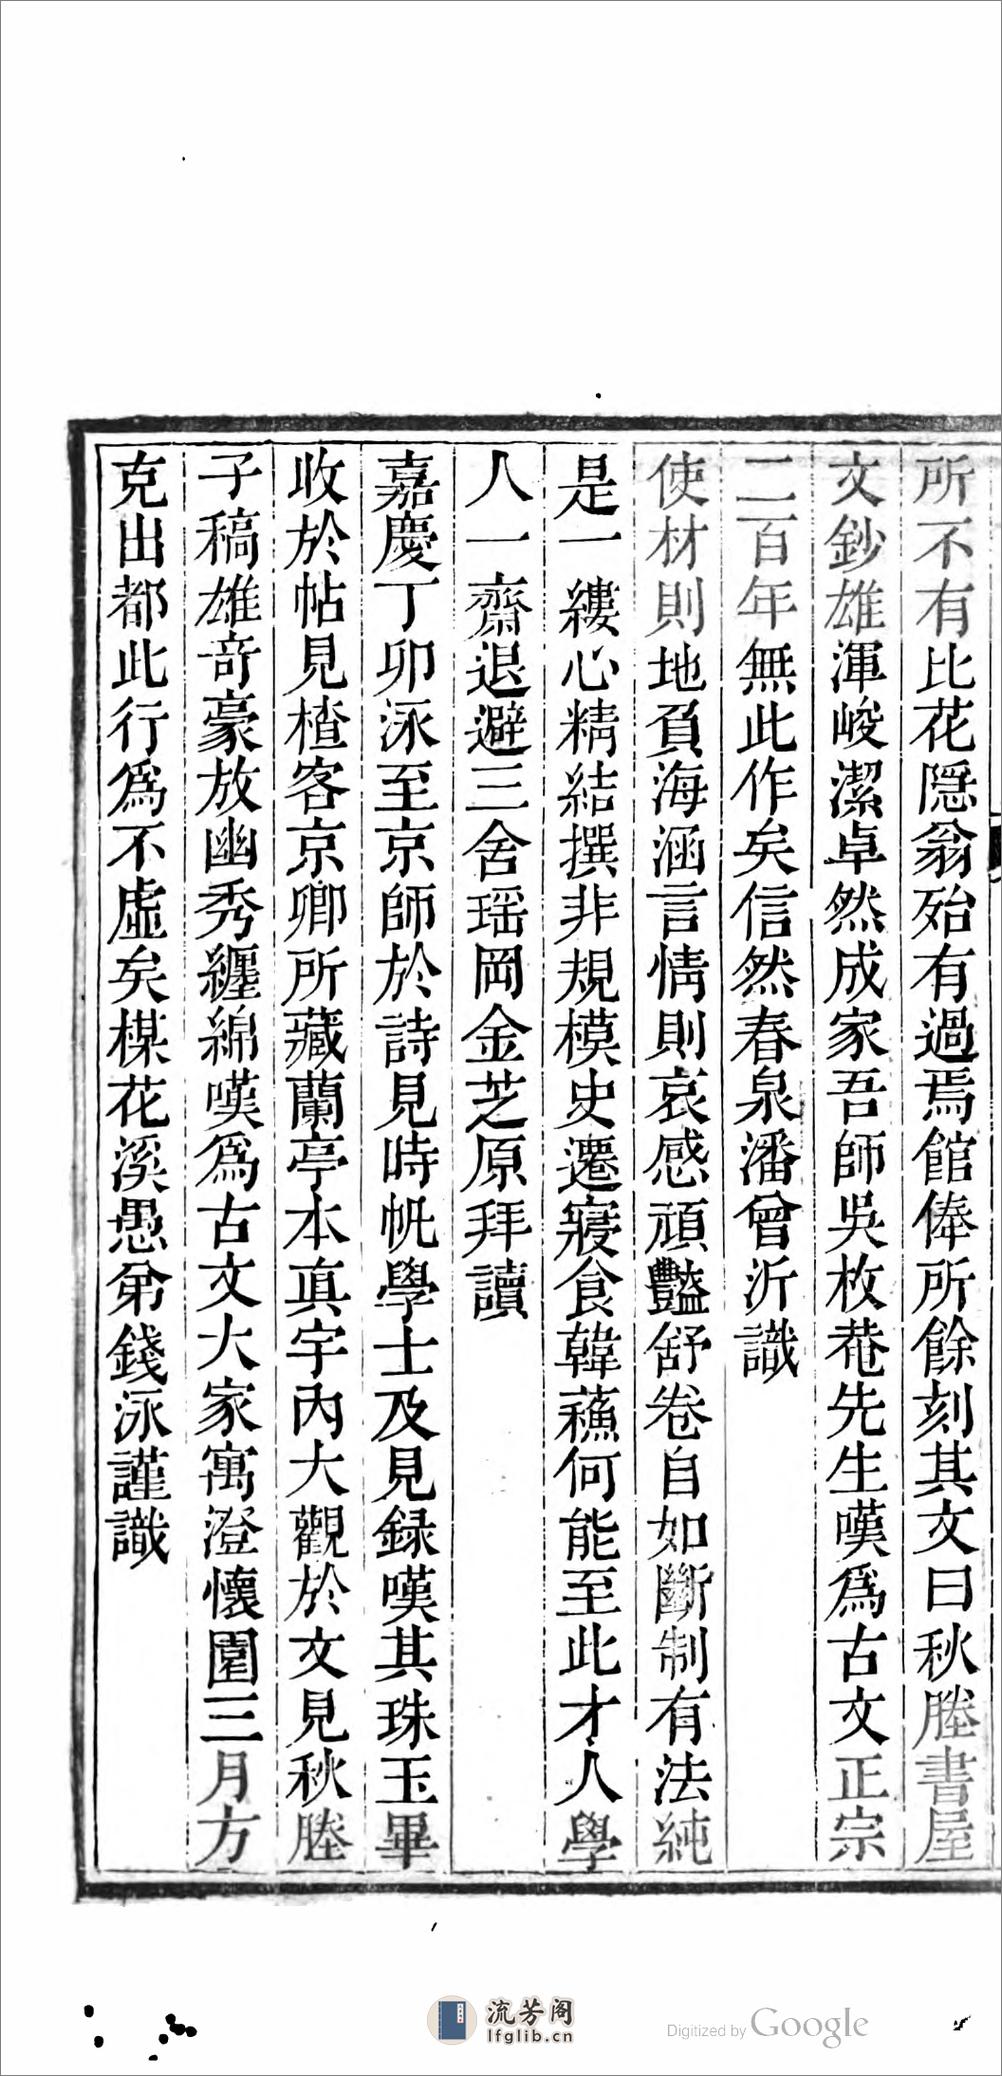 所不有比花隱翁殆有過焉館俸所餘刻其文曰秋塍書屋
文鈔雄渾峻潔卓然成家吾師吳枚菴先生嘆爲古文正宗
二百年無此作矣信然春泉潘曾沂識
使材則地負海涵言情則哀感頑豔舒卷自如斷制有法純
是一縷心精結撰非規模史遷寢食韓蘓何能至此才人學
人一齋退避三舍瑶岡金芝原拜讀
嘉慶丁卯泳至京師於詩見時帆學士及見録嘆其珠玉畢
收於帖見楂客京卿所藏蘭亭本眞宇內大觀於文見秋塍
子稿雄奇豪放幽秀纏綿嘆爲古文大家寓澄懷園三月方
克出都此行爲不虛矣楳花溪愚弟錢泳謹識
流芳阁
lfglib.cn
Digitized by Google